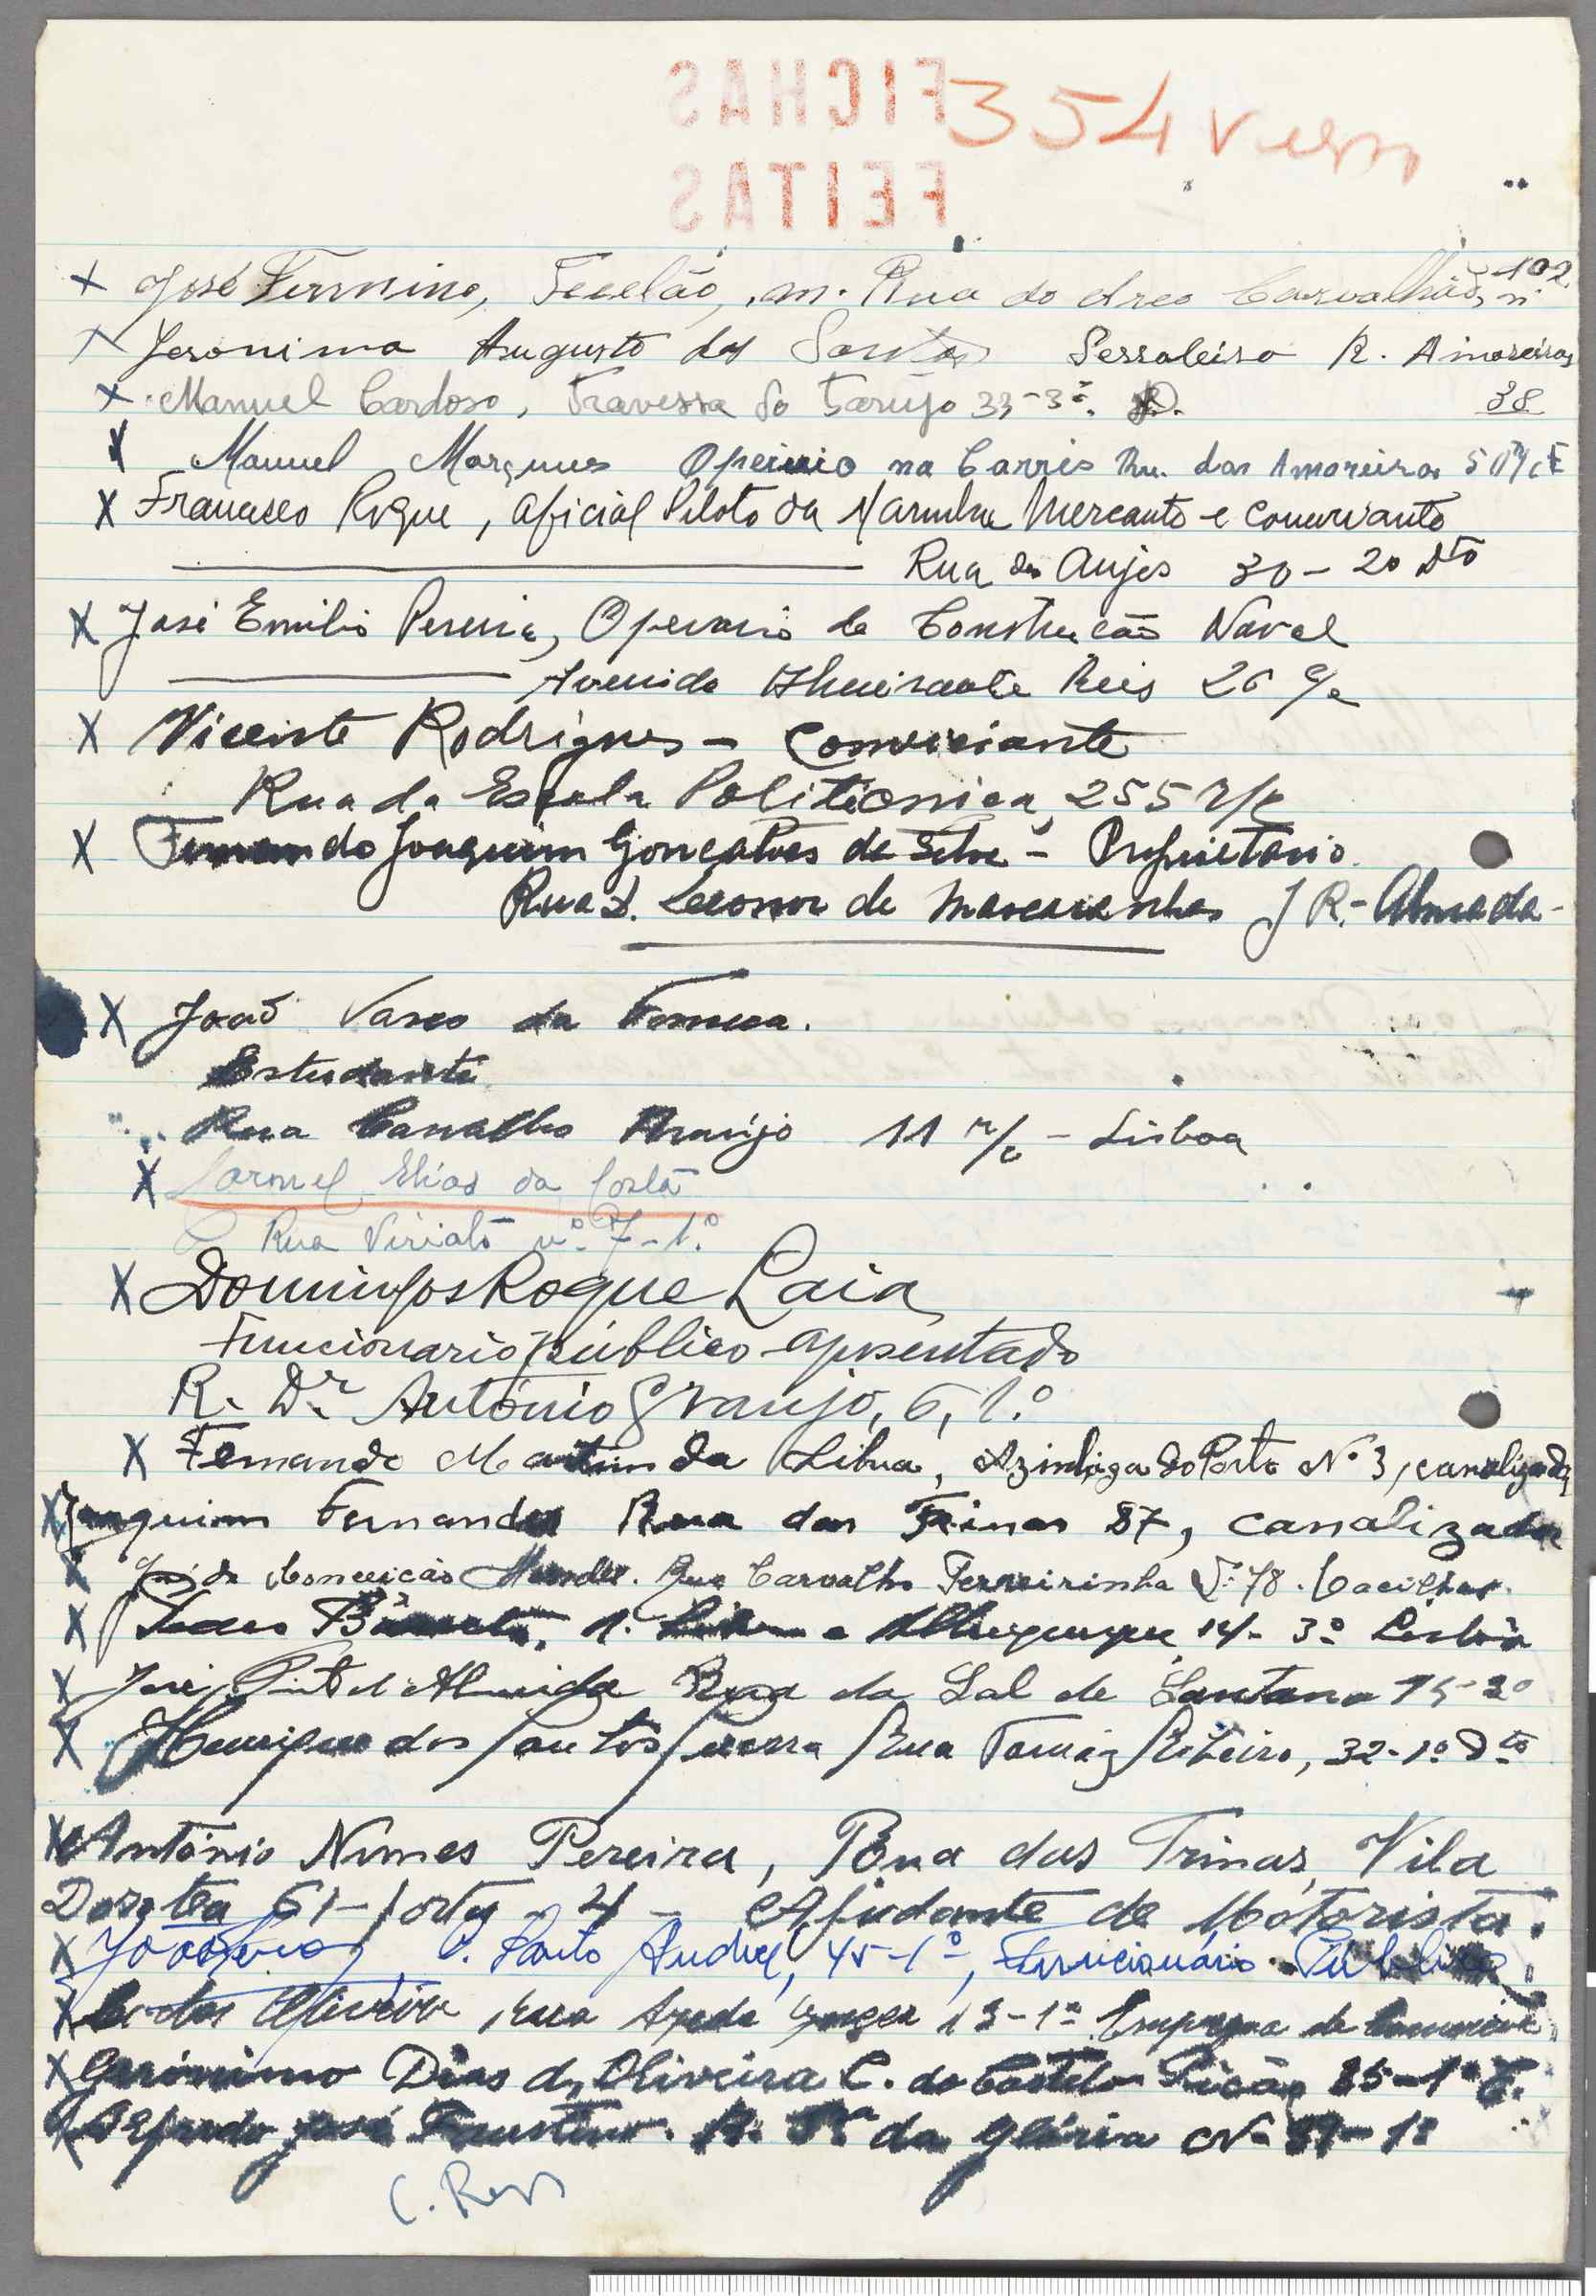 FICHAS
FEITAS
354 vem
X José Firmino, Tecelão, m. Rua do Arco Carvalhão, n.º 102
X Jeronimo Augusto dos Santos Serraleiro R. Amoreiras
38
X Manuel Cardoso, Travessa do 33-3º. D.
X Manuel Marques Operario na Carris Ru. das Amoreiras
X Francisco Roque, oficial Piloto da Marinha Mercante e
Rua dos Anjos 30-2o Dto
X José Emilio Pereira, Operario de Construcão Naval
Avenida Almirante Reis 26
X Vicente Rodrigues - Comerciante
Rua da Escola Politécnica, 255 r/c
X Fernando Joaquim Gonçalves da Silva - Proprietario
Rua D. Leonor de Mascarenhas J R.- Almada-
X João Vasco da Fonseca.
Estudante
Rua Carvalho Araújo 11 r/c - Lisboa
X Carmel Elias da Costa
Rua Viriato nº. 7-1.º
X Domingos Roque Laia
Funcionario público aposentado
R. Dr António Granjo, 6, 1.º
X Fernando Martim da Silva, Azinhaga do Porto Nº 3, canalizador
X Joaquim Fernandes Rua das Trinas 87, canalizador
X José da Conceição Mendes. Rua Carvalho Ferreirinha Nº 78. Cacilhas.
X Albuquerque, 14- 3º Lisboa
X José Pinto d'Almeida Rua da Sal de Santana 15-2º
X Henrique dos Santos Rua Tomaz Ribeiro, 32-1º Dto
X António Nunes Pereira, Rua das Trinas, Vila
Dorotea 61-porta-4- Ajudante de Motorista.
X Santo André, 45-1º, Funcionário Público
X Oliveira Rua 13-1º
X Gerónimo Dias d'Oliveira C. do Castelo Picão 25-1º E.
X Alfredo José Faustino. da Glória Nº
C. Reis